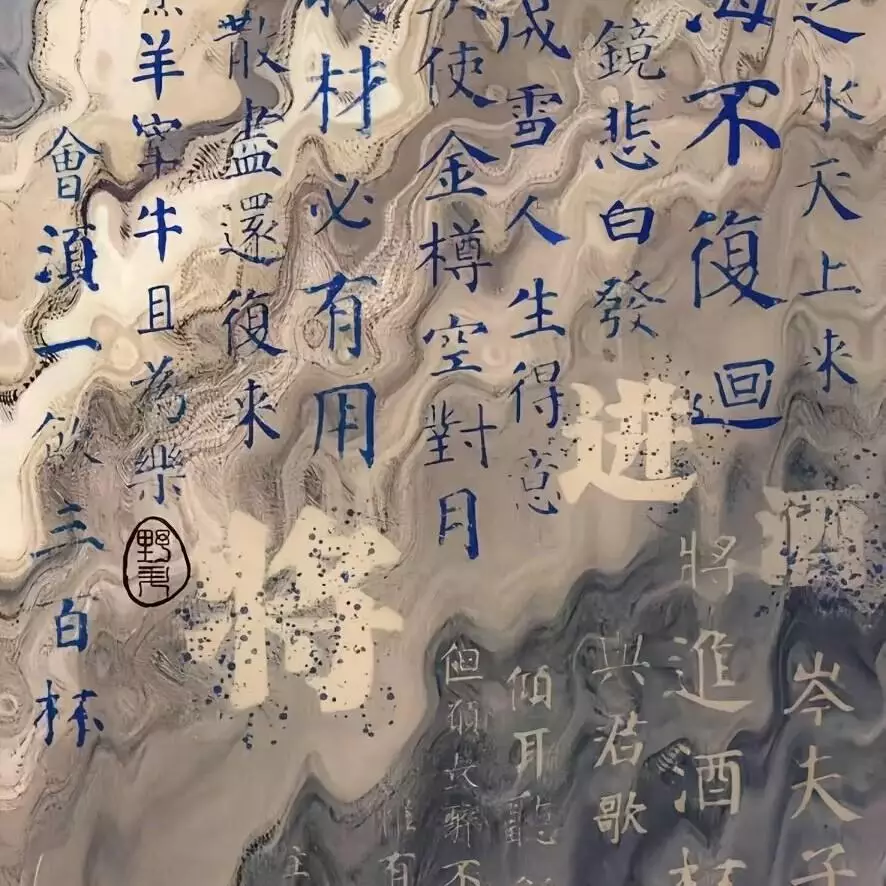 之水天上来
海不復迴
鏡悲白發
成雪人生得意
使金樽空對月
我材必有用
散盡還復来
羊宰牛且為樂
會湏一飲三百杯
将
进
酒
岑夫子
將進酒杯
與君歌
傾耳聽
但願長醉不
惟有
主